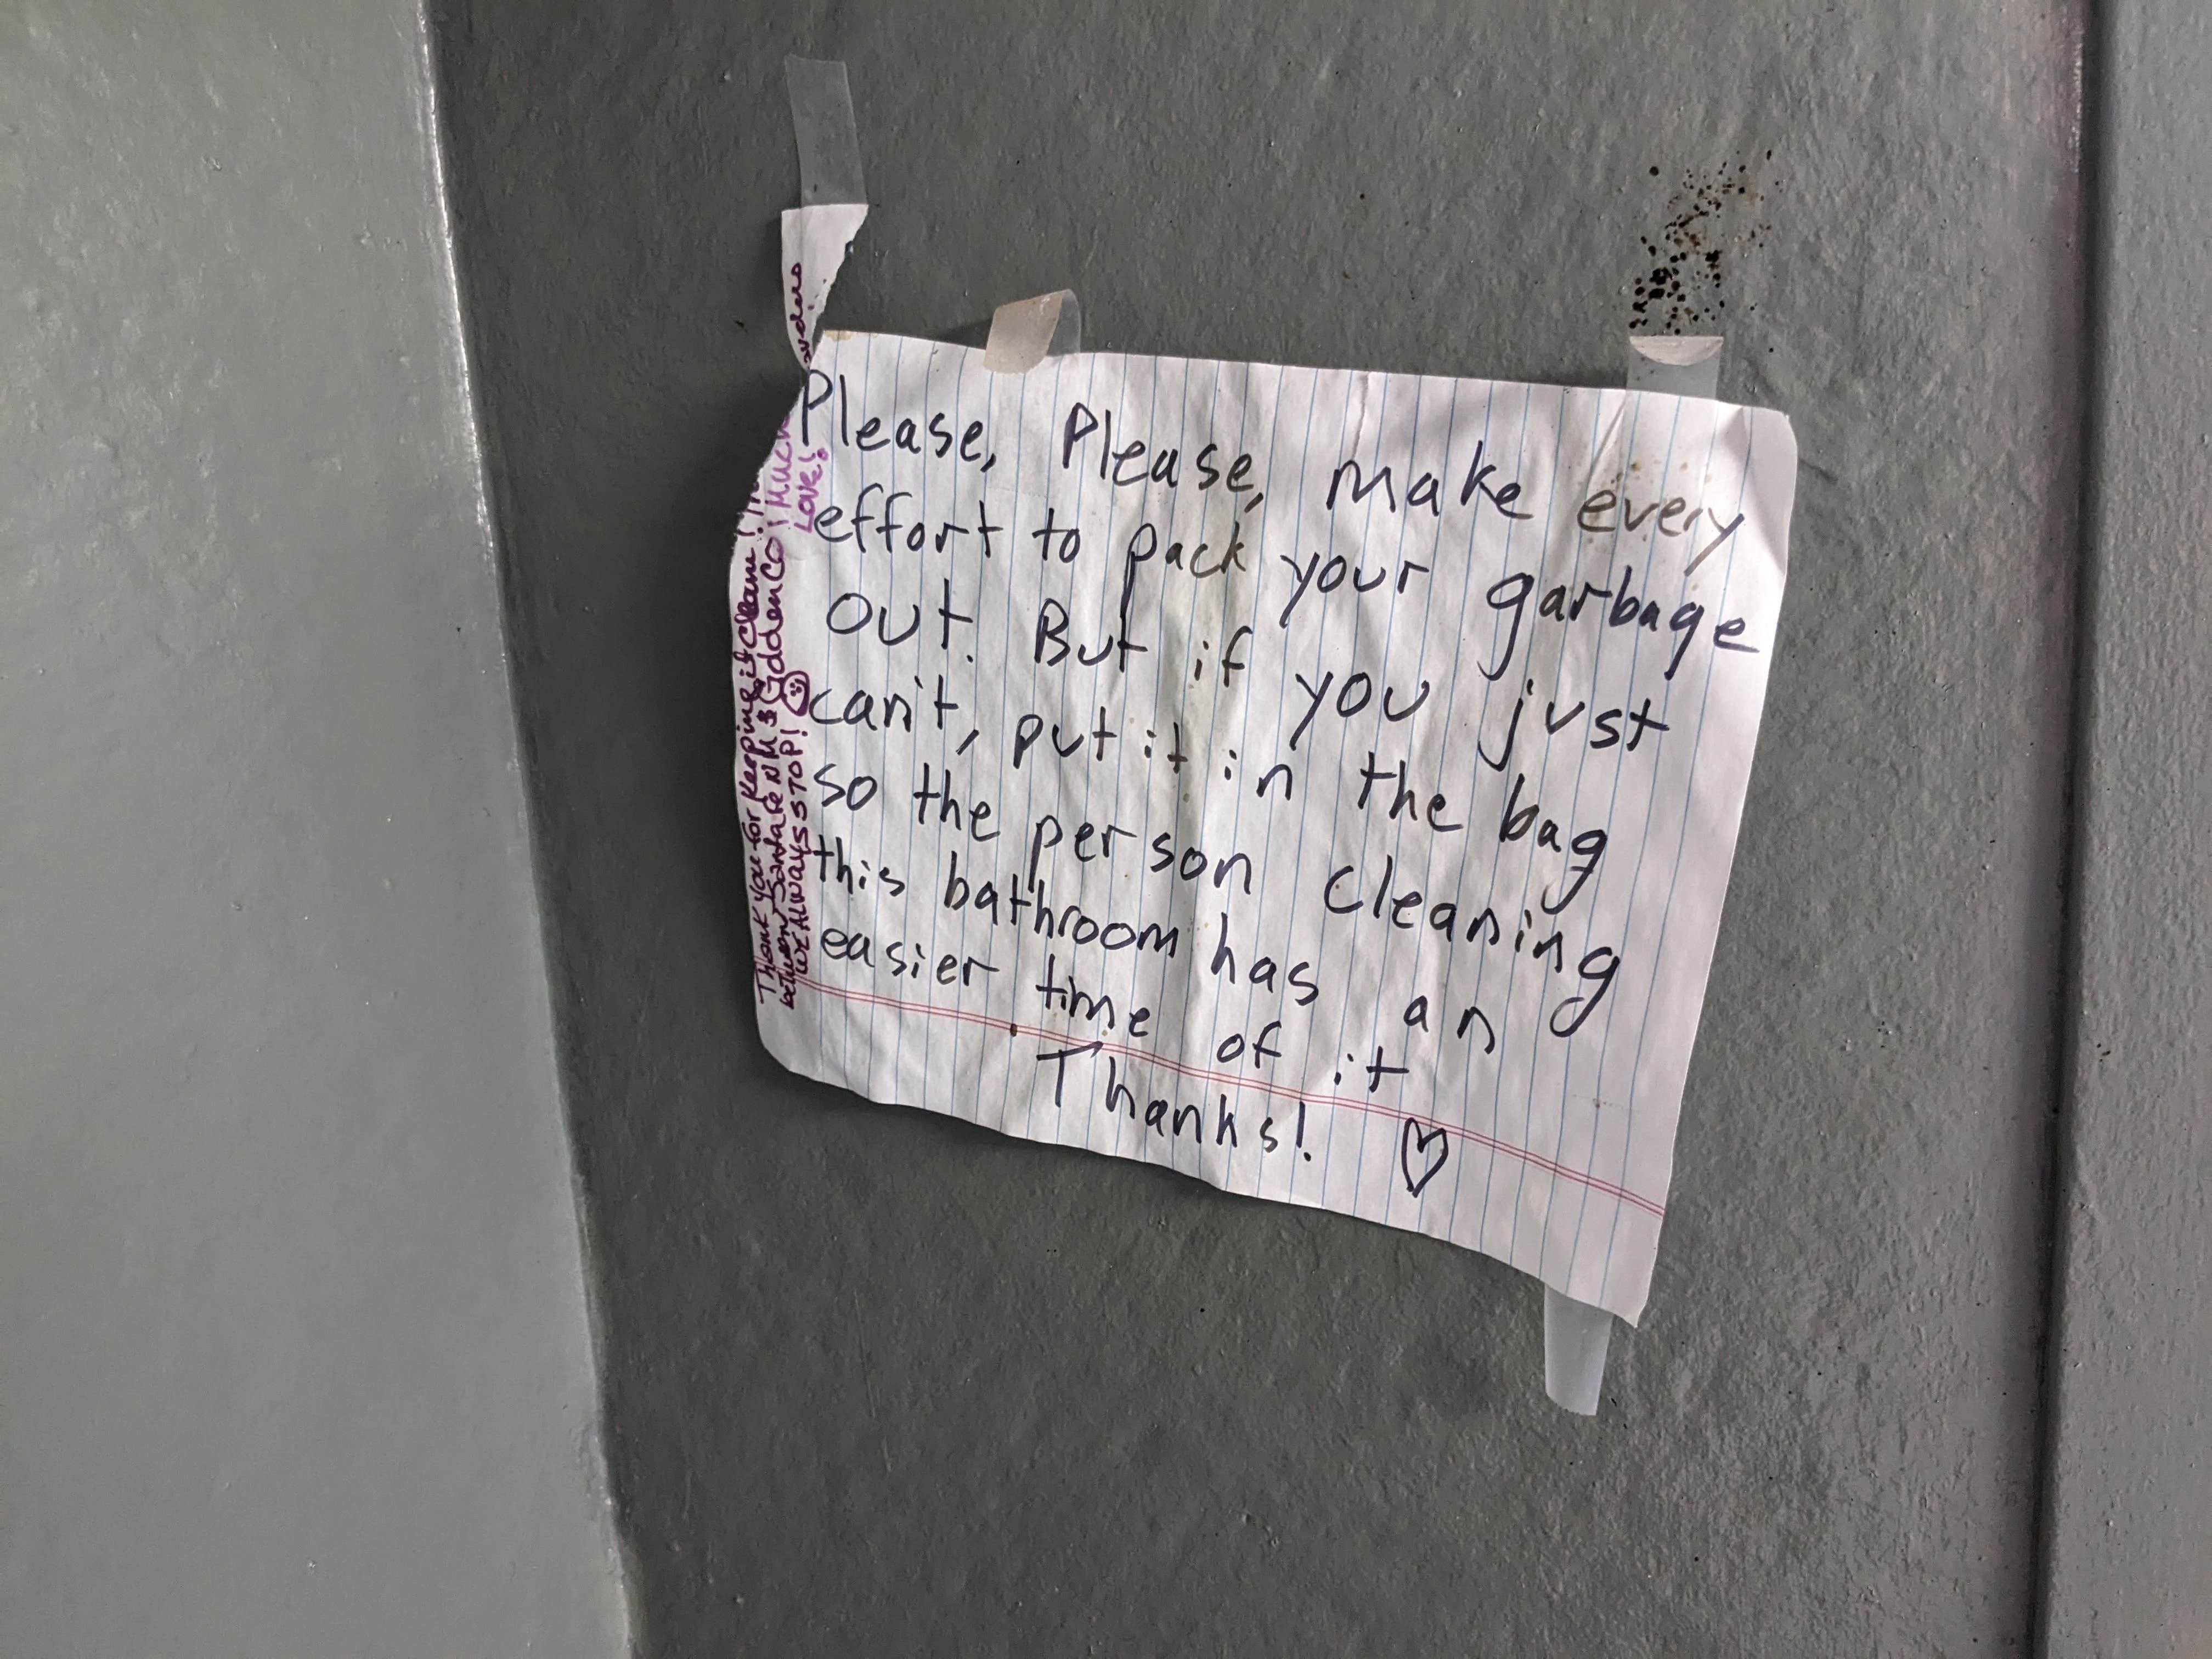 Please, Please, make every
effort to pack your garbage
out. But if you just
can't, put it in the bag
so the person cleaning
this bathroom has an
easier time of it
Thanks! ♡
Thank you for keeping it clean!
between Santa Fe NM & Golden CO! MUCH
WE ALWAYS STOP! ☺ LOVE!